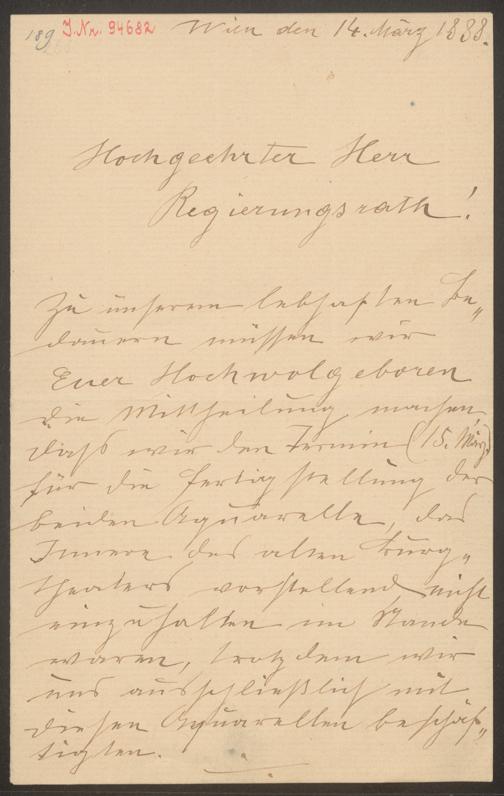 189 J.Nr. 94682 Wien den 14. März 1888.
Hochgeehrter Herr
Regierungsrath!
Zu unserem lebhaften Be„
dauern müssen wir
Euer Hochwolgeboren
die Mittheilung machen,
daß wir den Termin (15. März)
für die Fertigstellung der
beiden Aquarelle, das
Innere des alten Burg„
theaters vorstellend, nicht
einzuhalten im Stande
waren, trotzdem wir
uns ausschließlich mit
diesen Aquarellen beschäf„
tigten.